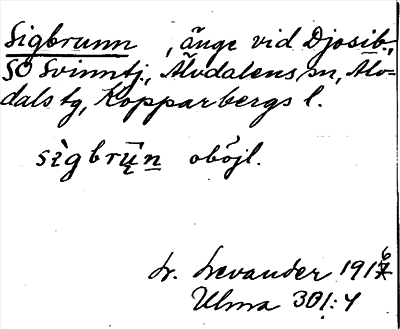 Sigbrunn, änge vid Djosib.,
SO Svinntj., Älvdalens sn, Älv-
dals tg, Kopparbergs l.
sìgbrụ̄n oböjl.
Lr. Levander 1916
Ulma 301:4